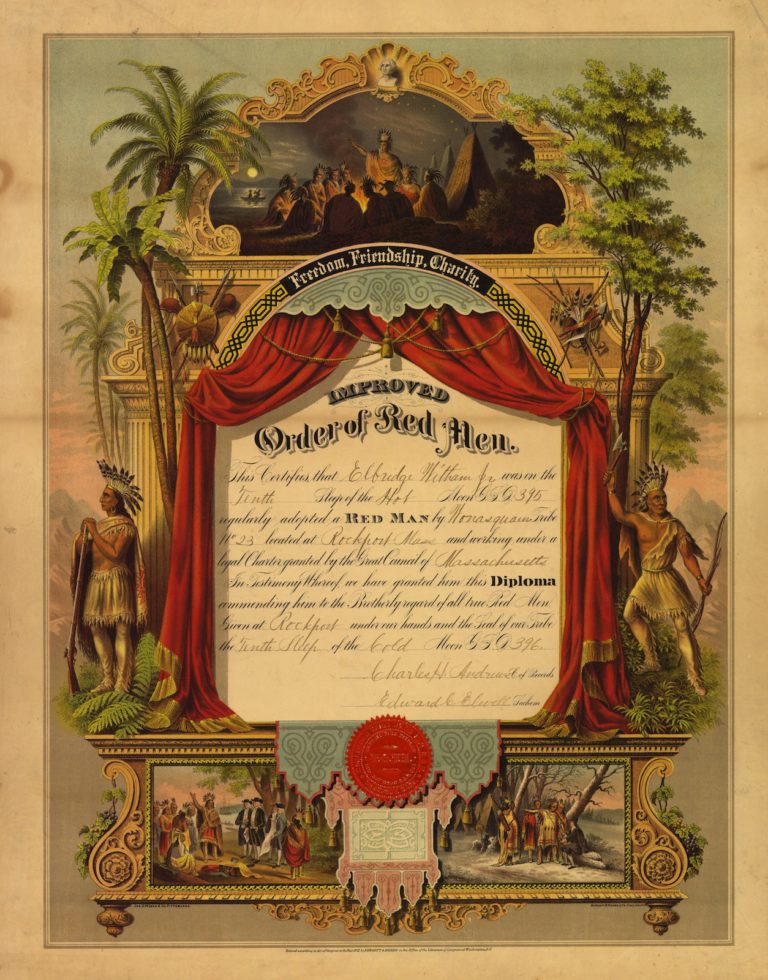 Freedom, Friendship, Charity.
IMPROVED
Order of Red Men.
This Certifies, that Elbridge Witham Jr was on the
Tenth Sleep of the Hot Moon G.S.D. 395
regularly adopted a RED MAN by Wonasquam Tribe
No 23 located at Rockport Mass and working under a
legal Charter granted by the Great Council of Massachusetts
In Testimony Whereof, we have granted him this Diploma
commending him to the Brotherly regard of all true Red Men
Given at Rockport under our hands and the Seal of our Tribe
the Tenth Sleep of the Cold Moon G.S.D. 396.
Charles H. Andrews C. of Records
Edward C. Elwell Sachem